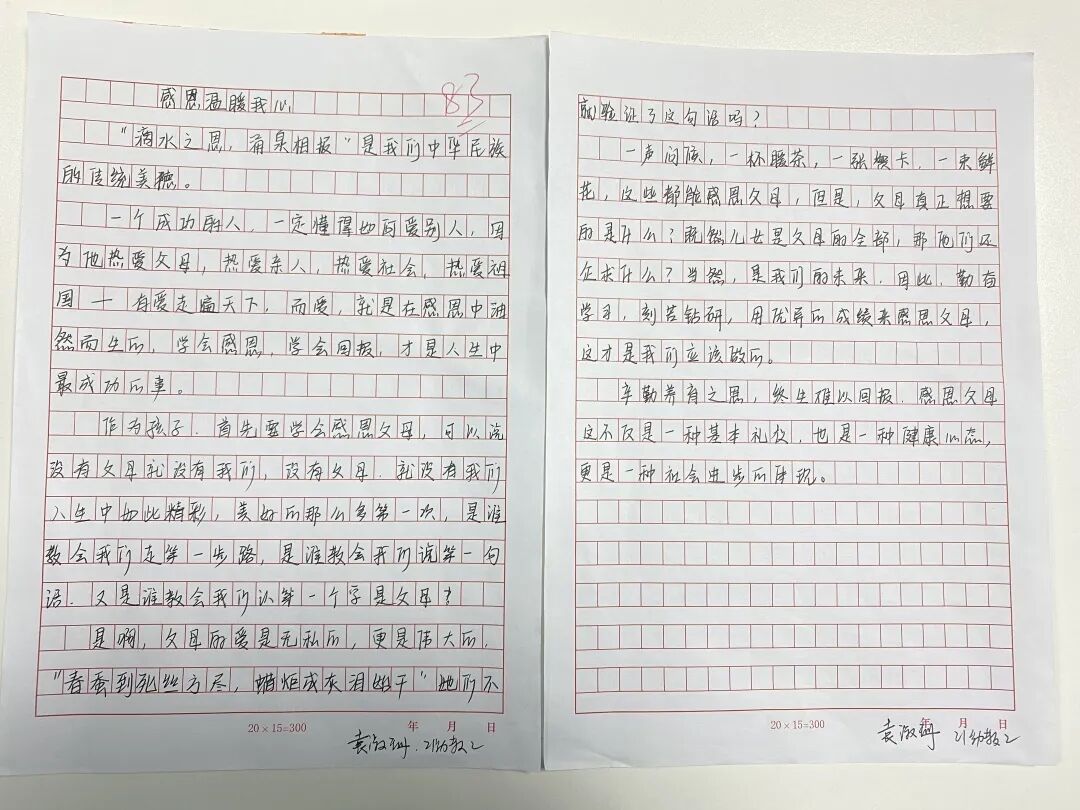 感恩温暖我心
83
"滴水之恩，涌泉相报"是我们中华民族
的传统美德。
一个成功的人，一定懂得如何爱别人，因
为他热爱父母，热爱亲人，热爱社会，热爱祖
国——有爱走遍天下，而爱，就是在感恩中油
然而生的，学会感恩，学会回报，才是人生中
最成功的事。
作为孩子.首先要学会感恩父母，可以说
没有父母就没有我们，没有父母.就没有我们
人生中如此精彩，美好的那么多第一次，是谁
教会我们走第一步路，是谁教会我们说第一句
话.又是谁教会我们认第一个字是父母？
是啊，父母的爱是无私的，更是伟大的.
"春蚕到死丝方尽，蜡炬成灰泪始干"她们不
20×15=300
年 月 日
袁淑珊.21幼教2
就验证了这句话吗？
一声问候，一杯暖茶，一张贺卡，一束鲜
花，这些都能感恩父母，但是，父母真正想要
的是什么？既然儿女是父母的全部，那他们还
企求什么？当然，是我们的未来.因此.勤奋
学习，刻苦钻研，用优异的成绩来感恩父母，
这才是我们应该做的。
辛勤养育之恩，终生难以回报.感恩父母
这不仅是一种基本礼仪.也是一种健康心态，
更是一种社会进步的体现。
20×15=300
年 月 日
袁淑珊 21幼教2